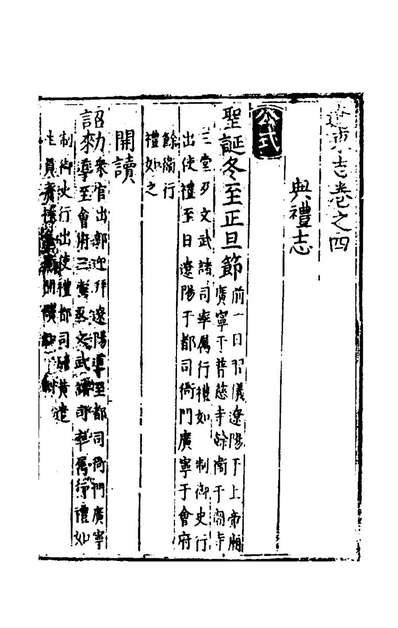 遼東志卷之四
典禮志
公式
聖誕冬至正旦節前一日習儀遼陽于上帝廟
廣寧于普慈寺餘衛于闊寺
三堂及文武諸司率屬行禮如制御史行
出使禮至日遼陽于都司衙門廣寧于會府
餘衛行
禮如之
開讀
詔勑眾官出郭迎拜遼陽導至都司衙門廣寧
來導至會府三堂及文武諸司率屬行禮如
制御史行出使禮都司
生員